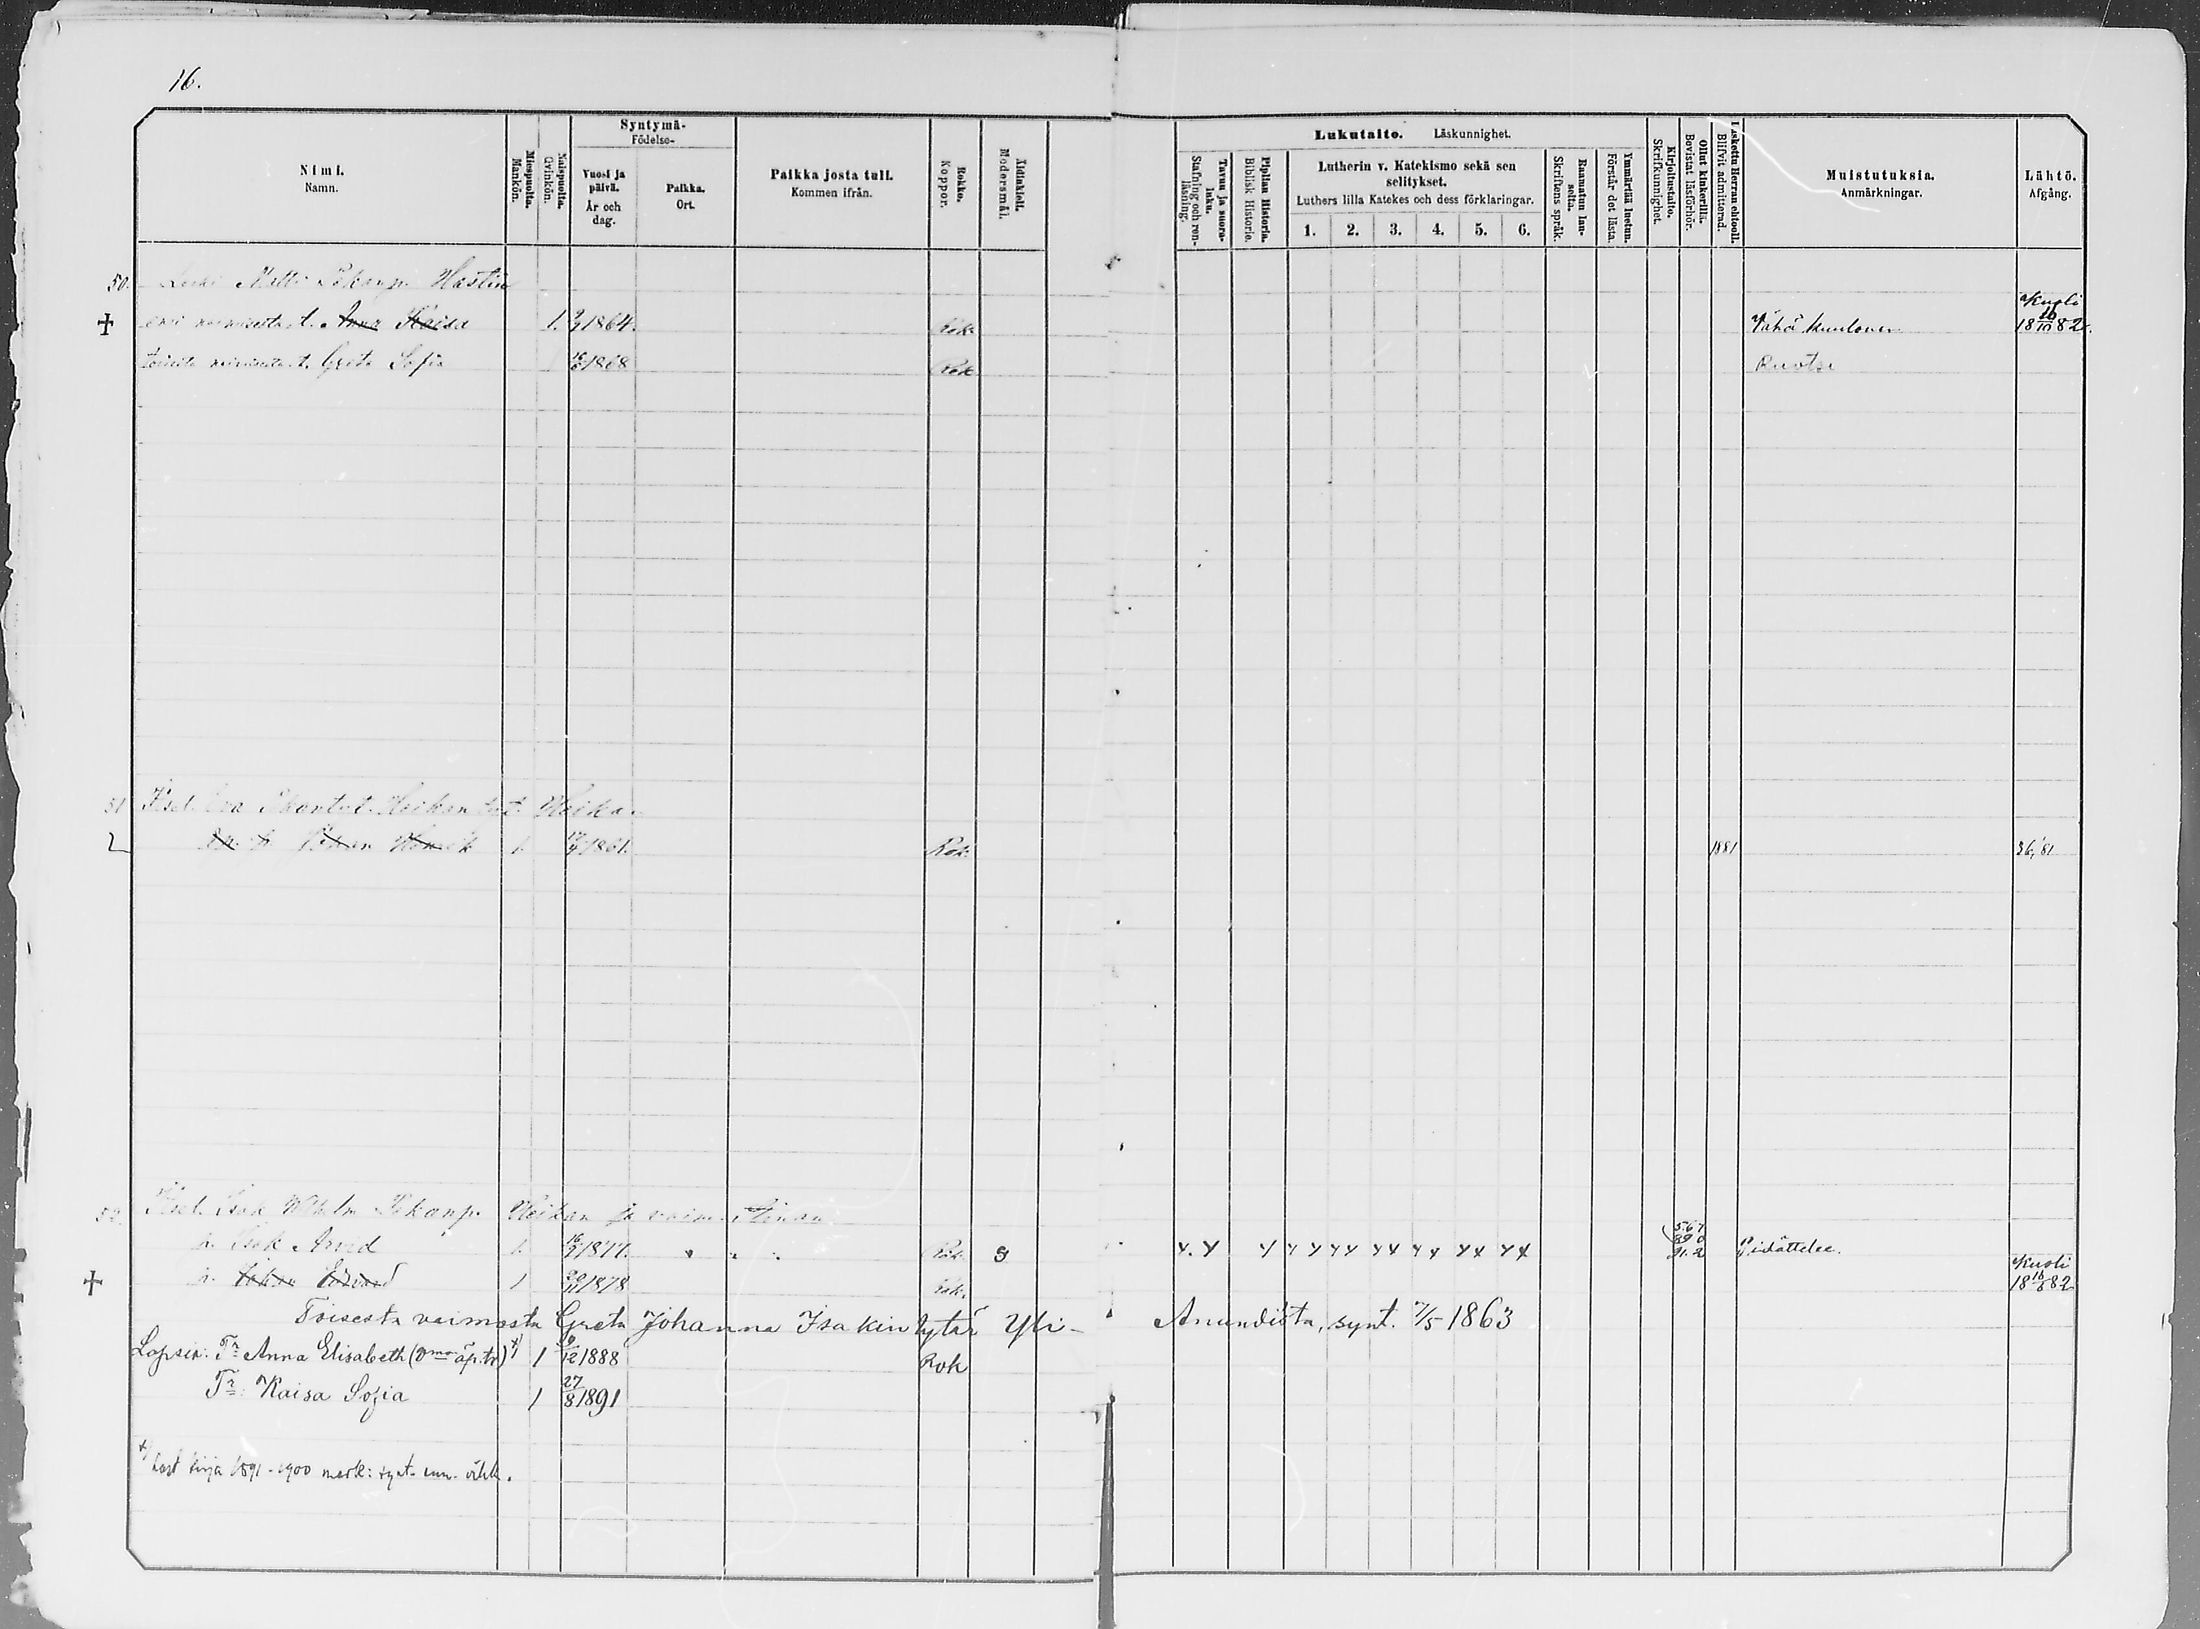 16.
Nimi.
Namn.
Miespuolta.
Mankön.
Naispuolta.
Qvinkön.
Syntymä-
Födelse-
Vuosi ja
päivä.
År och
dag.
Paikka.
Ort.
Paikka josta tuli.
Kommen ifrån.
Rokko.
Koppor.
Äidinkieli.
Modersmål.
Tavuu ja suora-
luku.
Stafning och ren-
läsning.
Piplian Historia.
Biblisk Historie.
Lukutaito. Läskunnighet.
Lutherin v. Katekismo sekä sen
selitykset.
Luthers lilla Katekes och dess förklaringar.
1. 2. 3. 4. 5. 6.
Raamatun lau-
selta.
Skriftens språk.
Ymmärtää luetun.
Förstår det lästa.
Kirjoitustaito.
Skrifkunnighet.
Ollut kinkerillä.
Bevistat läsförhör.
Laskettu Herran ehtooll.
Blifvit admitterad.
Muistutuksia.
Anmärkningar.
Lähtö.
Afgång.
50. Leski Matti Hastin
naimisesta t. Anna Kaisa 1. 1864. Rok. Vähä kuuloinen Kuoli 18 16/10 82.
toisesta naimisesta t. Greta Sofia 1868 Rok Ruotsi
51 Itsel. Heikan Heikan
Johan Henrik 1. 1861. Rok. 1881 36,'81
52. Itsel. Isak Wilhelm Heikan ja vaim.
p. Isak Arvid 1. 1877. " " " Rok. S 567 890 91.2
p. Johan Edvard 1 1878 Rok. Kuoli 18 82
Toisesta vaimosta Greta Johanna Isakin tytär Yli- Anundista, synt. 7/5 1863
Lapsia: Tr Anna Elisabeth 1 12 1888 Rok
Tr: Kaisa Sofia 1 27/8 1891
x) last kirja 1891-1900 merk: synt.